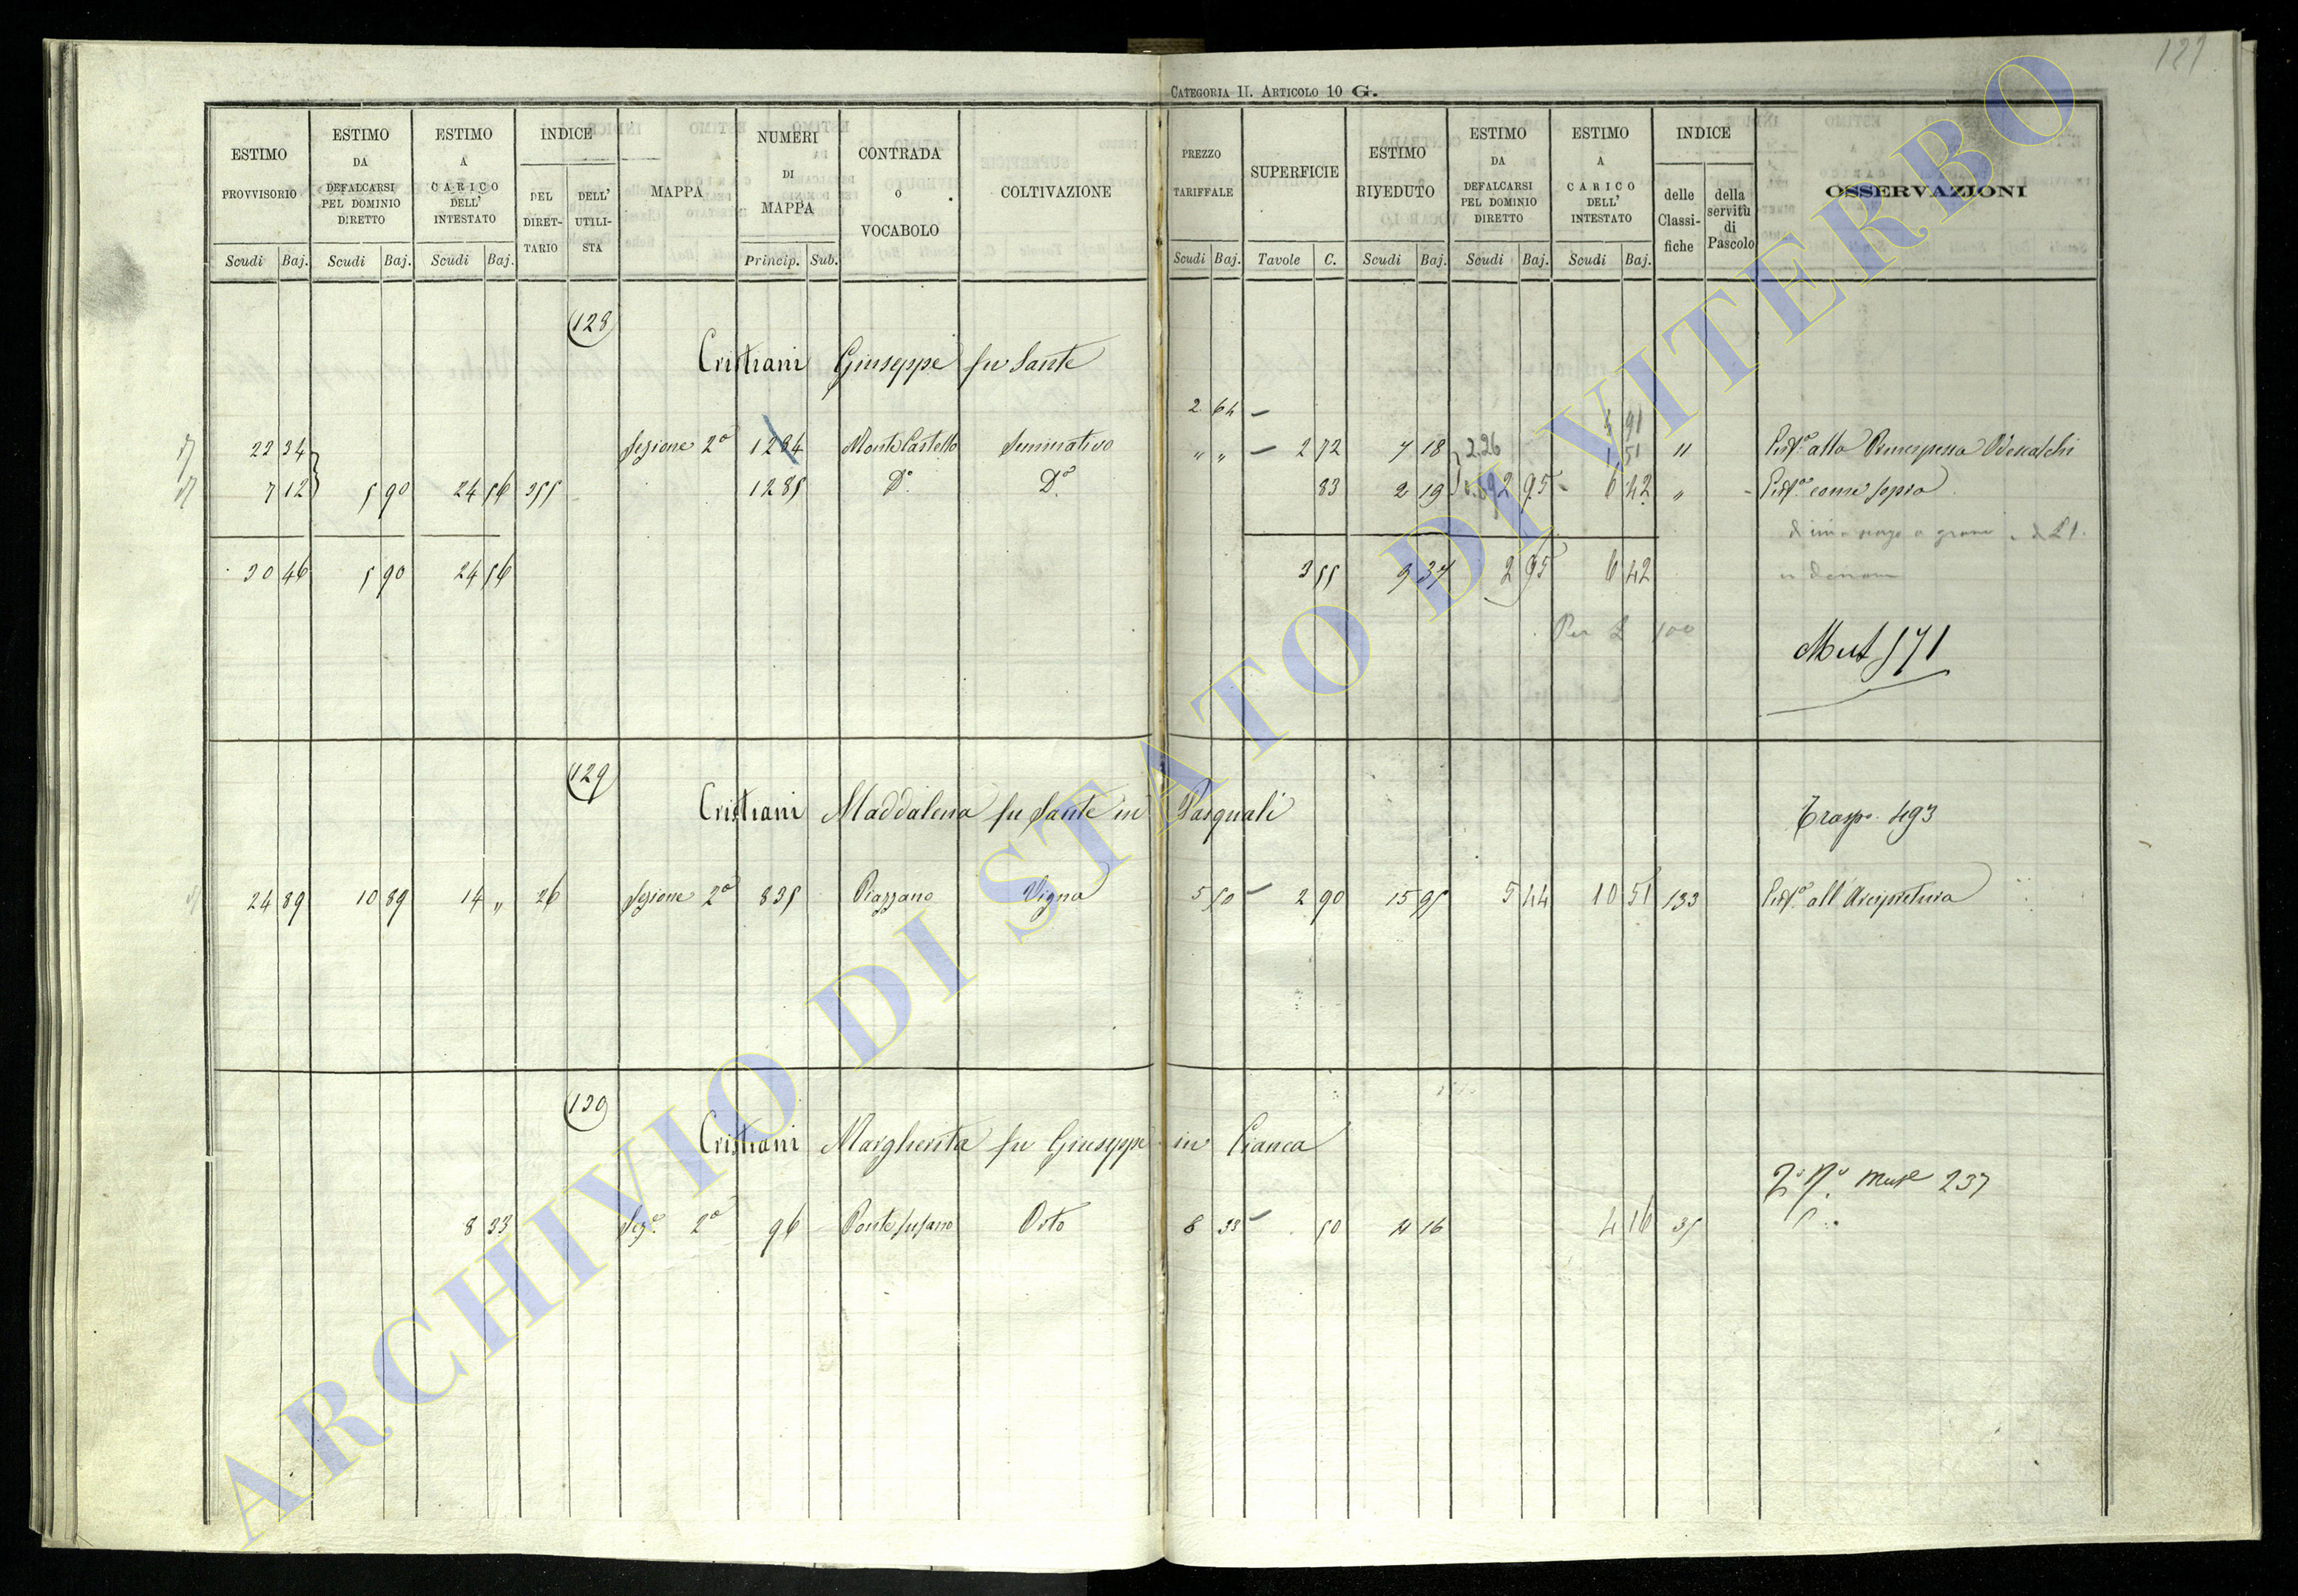 127
CATEGORIA II. ARTICOLO 10 G.
ESTIMO PROVVISORIO Scudi Baj.
ESTIMO DA DEFALCARSI PEL DOMINIO DIRETTO Scudi Baj.
ESTIMO A CARICO DELL' INTESTATO Scudi Baj.
INDICE DEL DIRET-TARIO DELL' UTILI-STA
MAPPA
NUMERI DI MAPPA Princip. Sub.
CONTRADA o VOCABOLO
COLTIVAZIONE
PREZZO TARIFFALE Scudi Baj.
SUPERFICIE Tavole C.
ESTIMO RIVEDUTO Scudi Baj.
ESTIMO DA DEFALCARSI PEL DOMINIO DIRETTO Scudi Baj.
ESTIMO A CARICO DELL' INTESTATO Scudi Baj.
INDICE delle Classi-fiche della servitù di Pascolo
OSSERVAZIONI
128
Cristiani Giuseppe fu Sante
2 64
22 34 Sezione 2a 1284 Monte Castello Seminativo " " 2 72 7 18 2.26 11 Risp.a alla Principessa Odescalchi
7 12 5 90 24 56 355 1285 Do Do 83 2 19 2 95 6 42 " Risp.a come sopra
30 46 5 90 24 56 3 55 9 37 2 95 6 42
Per £ 100
Mut 571
129
Cristiani Maddalena fu Sante in Pasquali Trasp. 493
24 89 10 89 14 " 26 Sezione 2a 835 Piazzano Vigna 5 50 2 90 15 95 5 44 10 51 133 Risp.a all'Arcipretura
130
Cristiani Margherita fu Giuseppe in Cianca
237
8 33 Sez.e 2a 96 Ponte Orto 8 33 50 4 16 4 16 35
ARCHIVIO DI STATO DI VITERBO